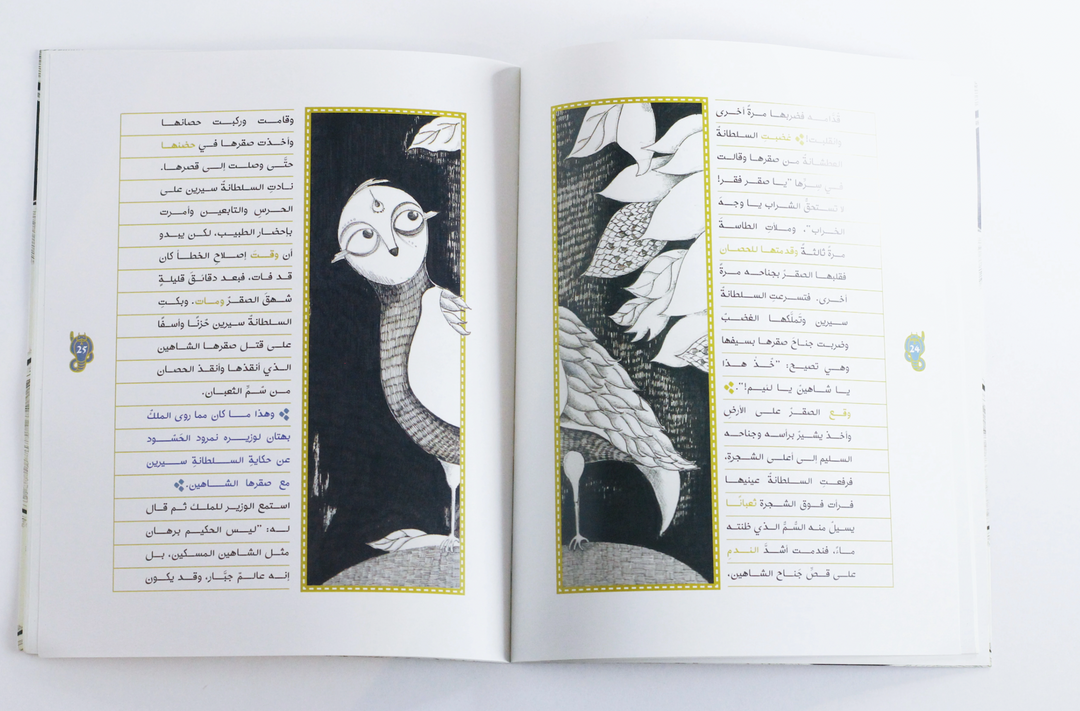 قدامه فضربها مرةً أخرى
وانقلبت! غضبتِ السلطانةُ
العطشانةُ من صقرها وقالت
في سرِّها "يا صقر فقر!
لا تستحقُّ الشراب يا وجهَ
الخراب". وملأتِ الطاسةَ
مرةً ثالثةً وقدَّمتها للحصان
فقلبها الصقرُ بجناحه مرةً
أخرى. فتسرعتِ السلطانةُ
سيرين وتملَّكها الغضبُ
وضربت جناحَ صقرها بسيفها
وهي تصيح: "خُذْ هذا
يا شاهينُ يا لئيم!".
وقع الصقرُ على الأرضِ
وأخذ يشيرُ برأسه وجناحه
السليم إلى أعلى الشجرة،
فرفعتِ السلطانةُ عينيها
فرأت فوق الشجرة ثعبانًا
يسيلُ منه السُّمُّ الذي ظنته
ماءً، فندمت أشدَّ الندمِ
على قصِّ جَناح الشاهين،
24
وقامت وركبت حصانها
وأخذت صقرها في حضنها
حتَّى وصلت إلى قصرها.
نادتِ السلطانةُ سيرين على
الحرسِ والتابعين وأمرت
بإحضار الطبيب، لكن يبدو
أن وقتَ إصلاحِ الخطأ كان
قد فات، فبعد دقائقَ قليلةٍ
شهقَ الصقرُ ومات. وبكتِ
السلطانةُ سيرين حُزنًا وأسفًا
على قتل صقرها الشاهين
الذي أنقذها وأنقذ الحصان
من سُمِّ الثعبان.
وهذا ما كان مما روى الملكُ
بهتان لوزيره نمرود الحَسُود
عن حكايةِ السلطانةِ سيرين
مع صقرها الشاهين.
استمع الوزير للملك ثم قال
له: "ليس الحكيم برهان
مثل الشاهين المسكين، بل
إنه عالمٌ جبَّار، وقد يكون
25